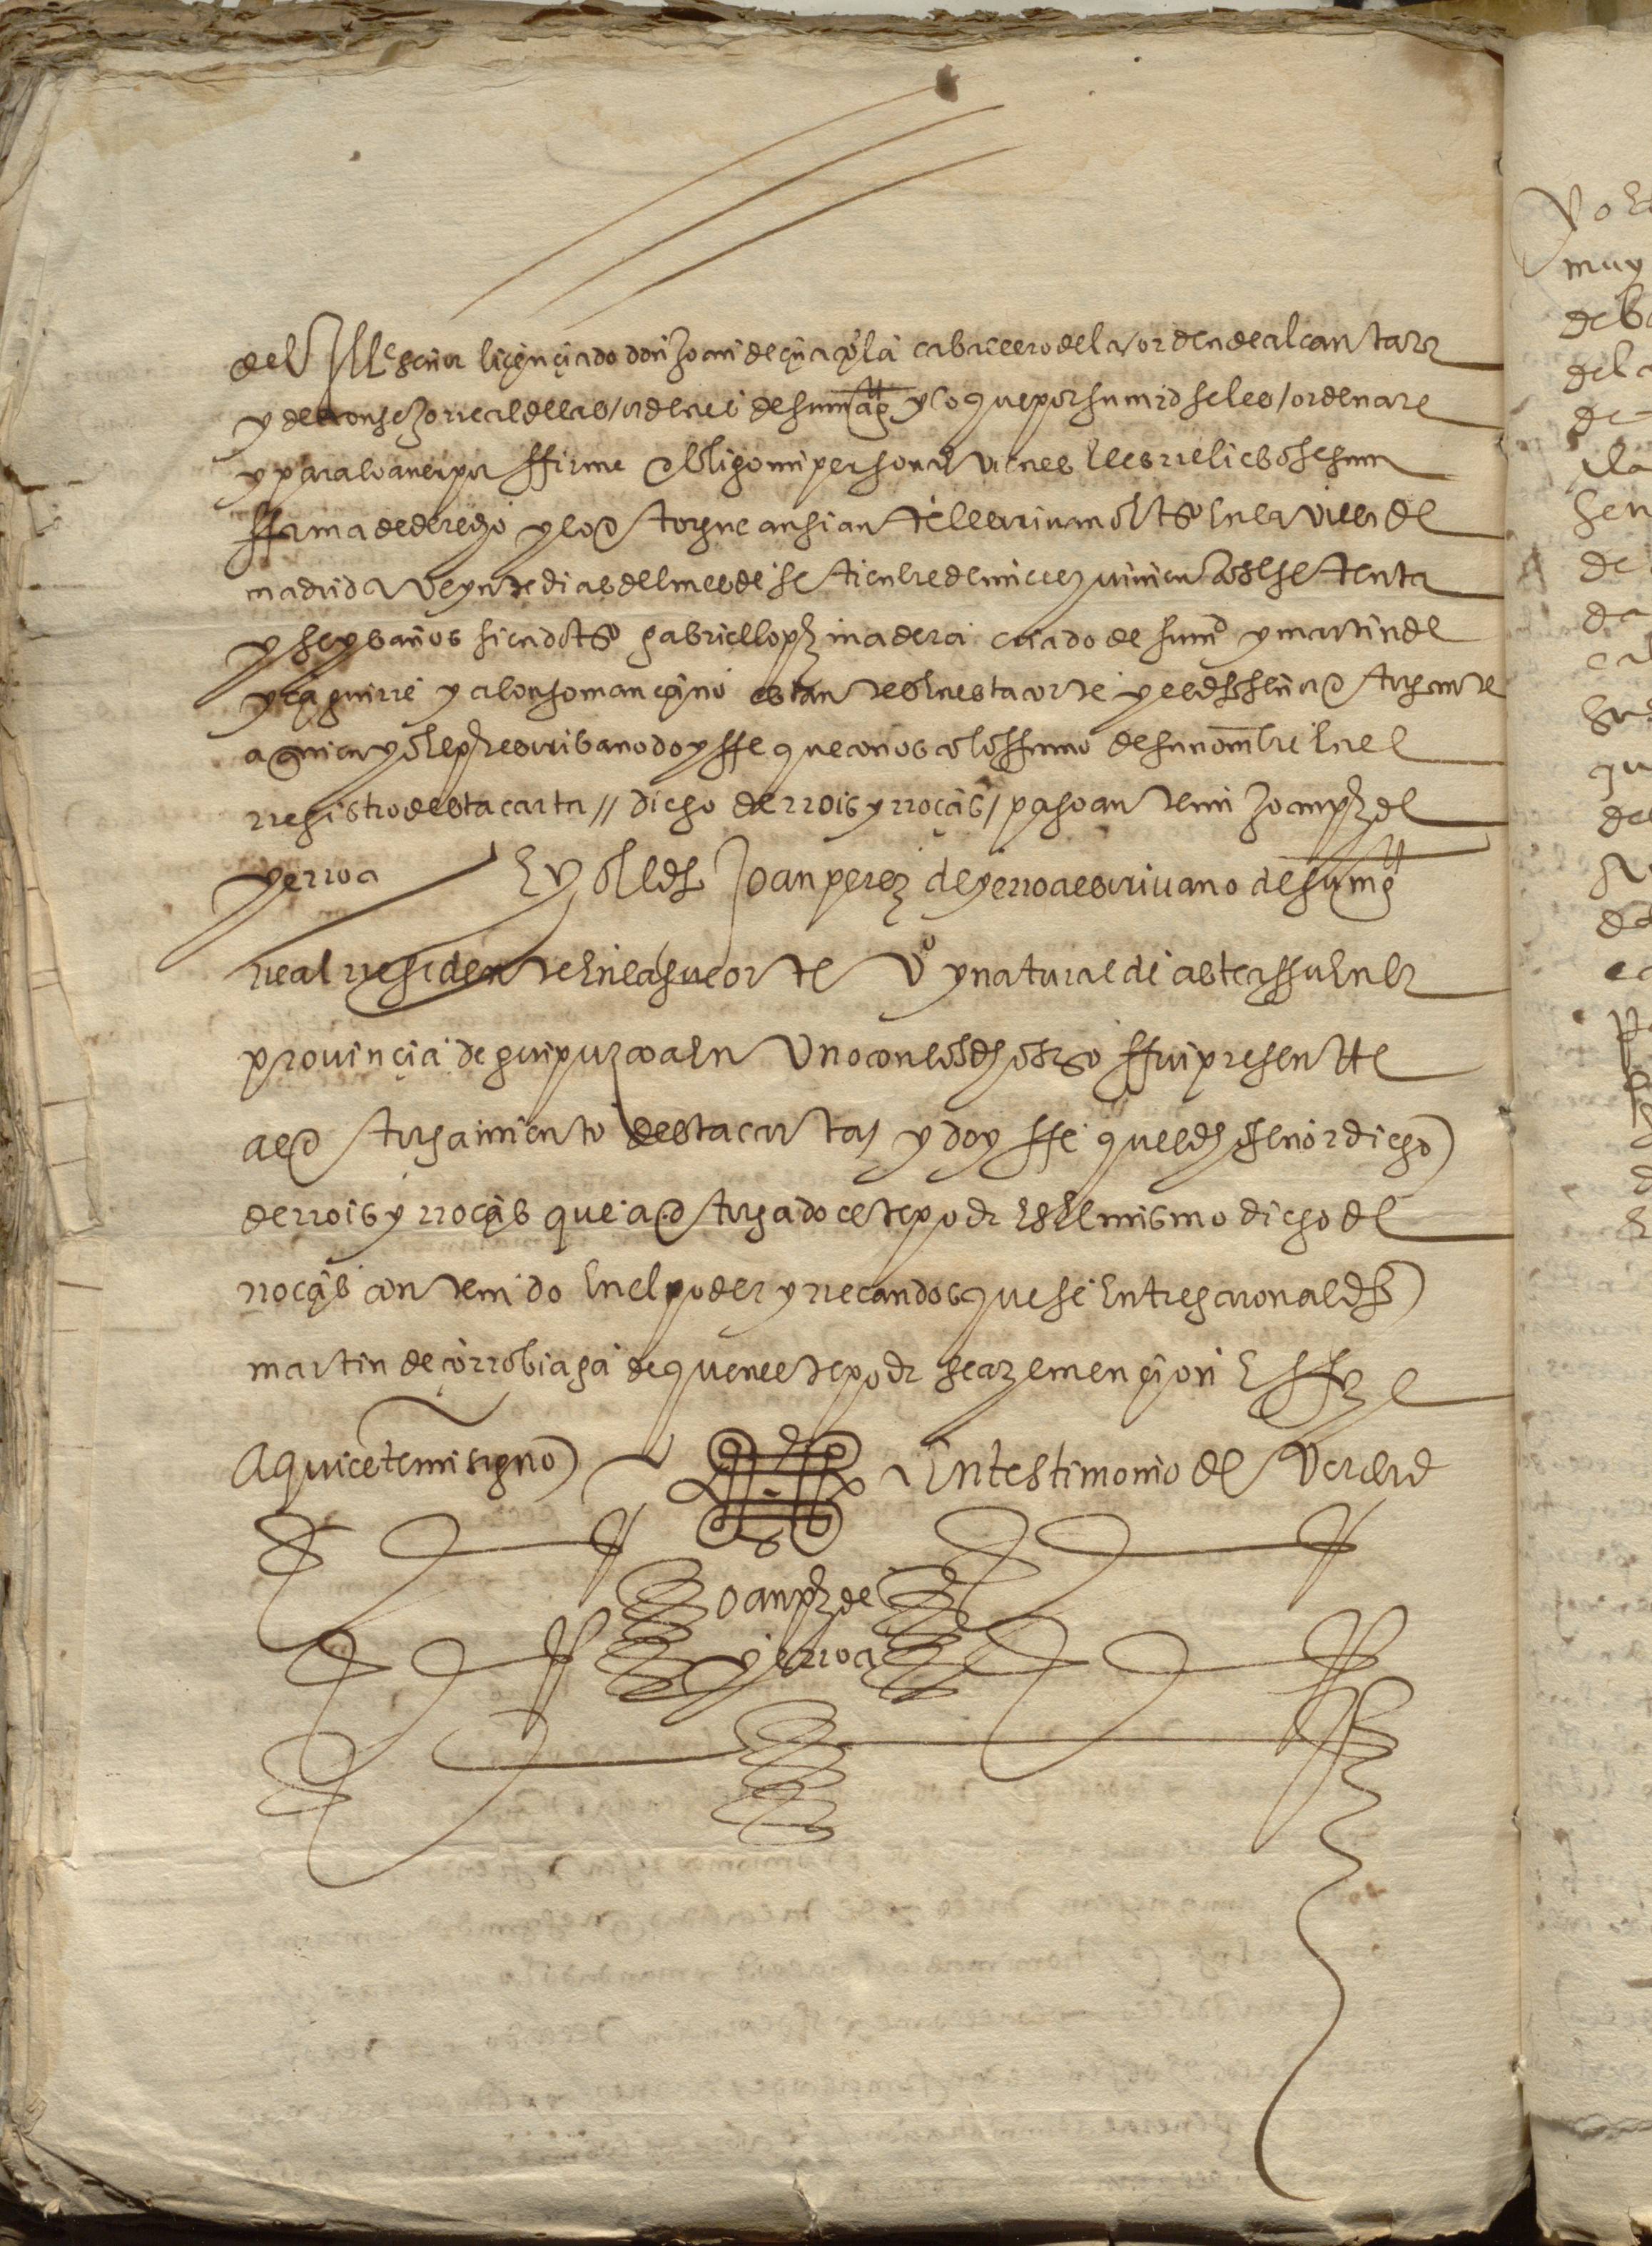 del Ille señor liçençiado don joan de çuaçola caballero de la orden de alcantara
y del consejo real de las ordenes de su magt y lo que por su md se les ordenare
y para lo aver por ffirme obligo mi persona e vienes e los rrelievo segun
fforma de derecho y lo otorgue ansi ante el escrivano e tso en la villa de
madrid a veynte dias del mes de setienbre de mill e quinientos e setenta
y seys años siendo tso gabriel lopz madera criado de su md y martin de
yçaguirre y alonso mançano estantes en esta corte y el dho señor otorgante
a quien yo el pressste escribano doy ffe que conosco lo ffirmo de su nombre en el
rregistro desta carta // diego de rrois y rroças / paso ante mi joan pz de
yerroa E yo el dho Joan perez de yerroa escrivano de su magt
rreal rresidente en la su corte vo y natural de asteassu en la
provinçia de guipuzcoa en uno con los dhos tso ffui presentte
al otorgamiento desta carta y doy ffe que el dho señor diego
de rrois y rroças que a otorgado este poder es el mismo diego de
rroças contenido en el poder y rrecaudos que se entregaron al dho
martin de çorrobiaga de que en este poder se aze mençion E ffize
Aqui este mi signo En testimonio de verdad
Joan pz de
yerroa